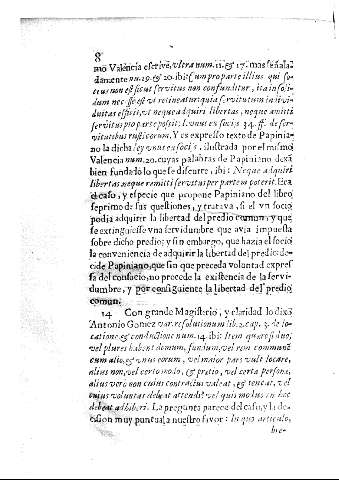 8
mo Valencia escrive, ultra num. 11. & 17. mas señala-
damente nu. 19. & 20. ibi: Cum pro parte illius qui so-
cius non est sicut servitus non confunditur, ita in soli-
dum necesse est ut retineatur quia servitutum indivi-
duitas efficit, ut neque adquiri libertas, neque amitti
servitus pro parte possit: l. unus ex socijs 34. ff. de ser-
vitutibus rusticorum. Y es expresso texto de Papinia-
no la dicha ley unus ex socijs, ilustrada por el mismo
Valencia num. 20. cuyas palabras de Papiniano dexã
bien fundado lo que se discurre, ibi: Neque adquiri
libertas neque remitti servitus per partem poterit. Era
el caso, y especie que propone Papiniano del libro
septimo de sus questiones, y tratava, si el un socio
podia adquirir la libertad del predio comun, y que
se extinguiesse vna servidumbre que avia impuesta
sobre dicho predio; y sin embargo, que hazia el socio
la conveniencia de adquirir la libertad del predio: de-
cide Papiniano, que sin que preceda voluntad expres-
sa del consocio, no precede la existencia de la servi-
dumbre, y por consiguiente la libertad del predio
comun.
14 Con grande Magisterio, y claridad lo dixo
Antonio Gomez var. resolutionum lib. 2. cap. 3. de lo-
catione, & conductione num. 14. ibi: Item quæro si duo,
vel plures habent domum, fundum, vel rem communẽ
cum alio, & unus eorum, vel maior pars vult locare,
alius non, vel certo modo, & pretio, vel certa persona,
alius vero non cuius contractus valeat, & teneat, vel
cuius voluntas debeat attendi? vel quis modus in hoc
debeat adhiberi. La pregunta parece del caso, y la de-
cission muy puntual a nuestro favor: In quo articulo,
bre-